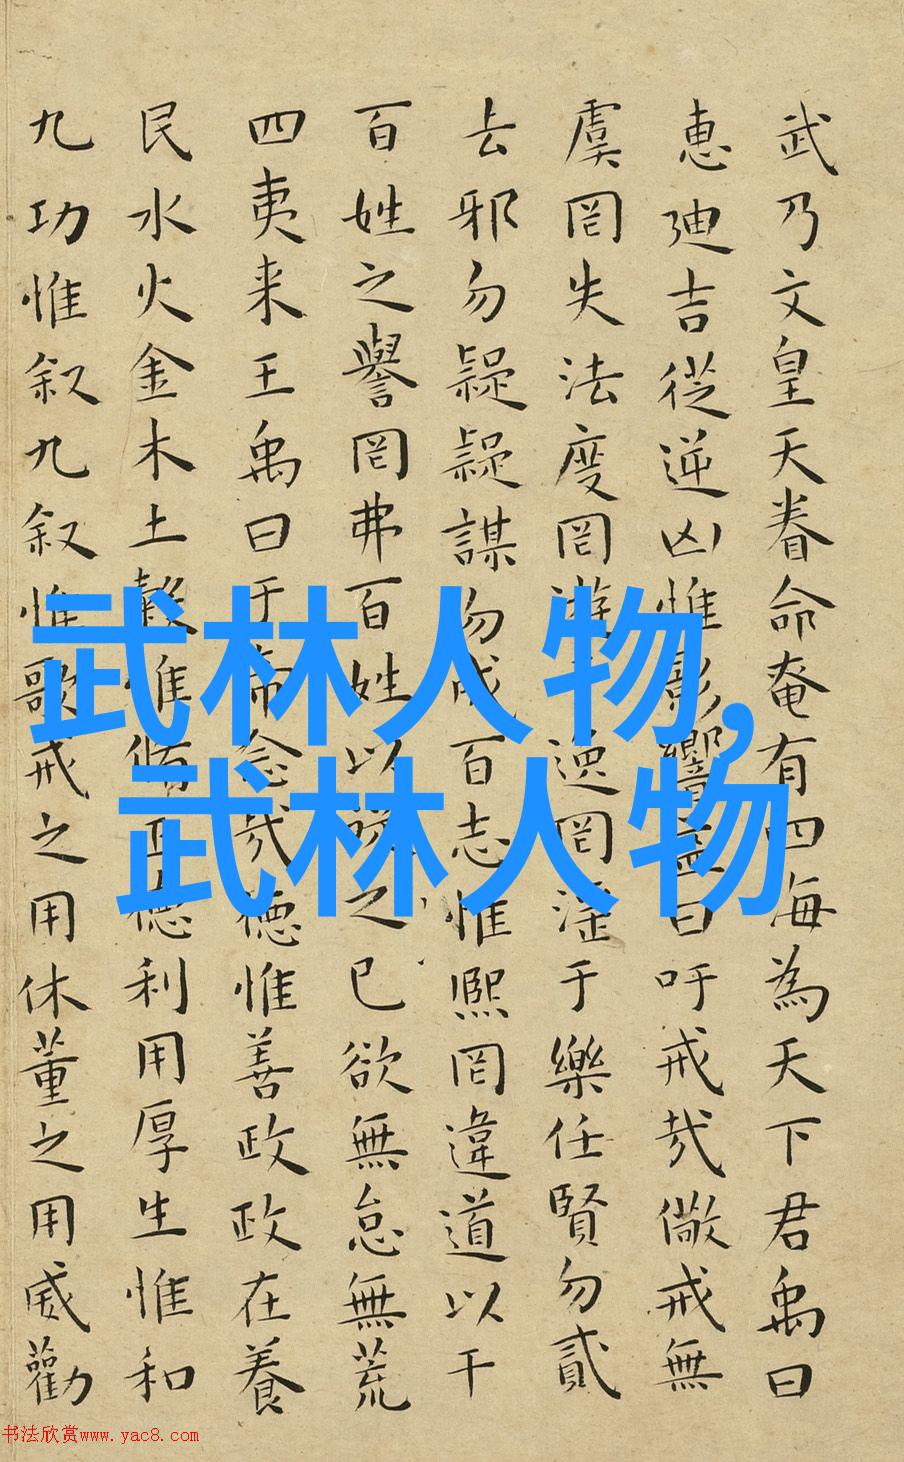 武乃文皇天眷命奄有四海為天下君禹曰
惠廸吉從逆凶惟影響益曰吁戒哉儆戒無
虞罔失法度罔遊逸罔淫于樂任賢勿貳
去邪勿疑疑謀勿成百志惟熈罔違道以干
百姓之譽罔弗百姓以從之已欲無怠無荒
四夷来王禹曰于帝念哉德惟善政政在養
民水火金木土穀惟脩正德利用厚生惟和
九功惟叙九叙惟歌戒之用休董之用威勸
武林人物,
武林人物
书法欣赏www.yac8.com